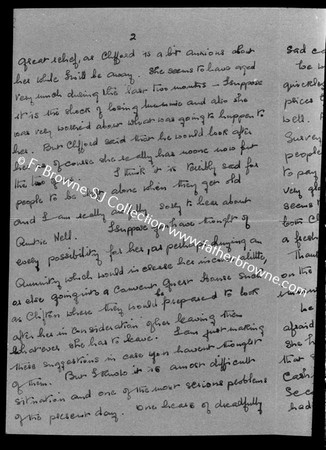 2
Great relief, as Clifford is a bit anxious about
her while I will be away. She seems to have aged
very much during the last two months – I suppose
it is the shock of losing Mummie and also she
was very worried about what was going to happen to
her. But Clifford said that he would look after
her of course she really has no one now but
the two of us. I think it is terribly sad for
people to be left alone when they get old
and I am really awfully sorry to hear about
Auntie Nell. I suppose you have thought of
every possibility for her, as perhaps buying an
Annuity which would increase her income a little,
or else going into a Convent Guest House such
as Clifton where they would be prepared to look
after her in consideration of her leaving them
whatever she has to leave. I am just making
these suggestions in case you haven't thought
of them. But I know it is a most difficult
situation and one of the most serious problems
of the present day. One hears of dreadfully
sad c
quickly
prices o
well.
Survey
people
to pay
very gl
seems t
both Cl
a fresh
Than
on the
afraid
She h
that
Cash
Sec
had
© Fr Browne SJ Collection